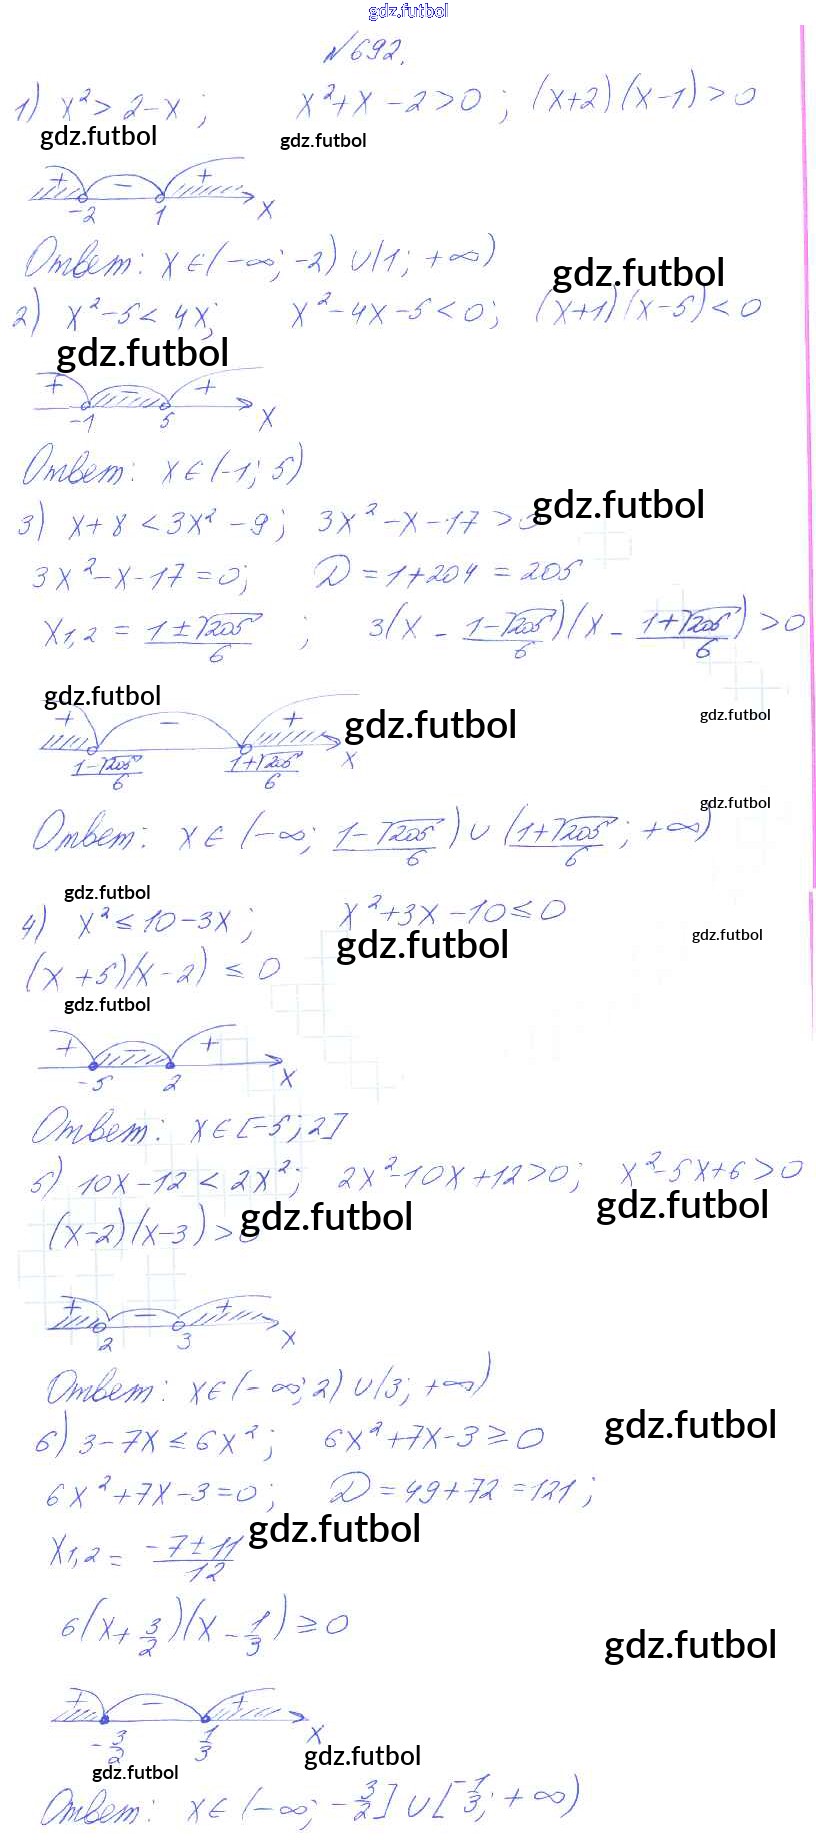 gdz.futbol
№692.
1) x² > 2 - x ; x² + x - 2 > 0 ; (x+2)(x-1) > 0
gdz.futbol gdz.futbol
+ - +
-2 1 x
Ответ: x ∈ (-∞; -2) ∪ (1; +∞)
gdz.futbol
2) x² - 5 < 4x; x² - 4x - 5 < 0; (x+1)(x-5) < 0
gdz.futbol
+ - +
-1 5 x
Ответ: x ∈ (-1; 5)
gdz.futbol
3) x + 8 < 3x² - 9; 3x² - x - 17 > 0
3x² - x - 17 = 0; D = 1 + 204 = 205
x1,2 = (1±√205)/6 ; 3(x - (1-√205)/6)(x - (1+√205)/6) > 0
gdz.futbol
gdz.futbol gdz.futbol
+ - +
(1-√205)/6 (1+√205)/6 x
gdz.futbol
Ответ: x ∈ (-∞; (1-√205)/6) ∪ ((1+√205)/6; +∞)
gdz.futbol
4) x² ≤ 10 - 3x; x² + 3x - 10 ≤ 0
gdz.futbol gdz.futbol
(x+5)(x-2) ≤ 0
gdz.futbol
+ - +
-5 2 x
Ответ: x ∈ [-5; 2]
5) 10x - 12 < 2x²; 2x² - 10x + 12 > 0; x² - 5x + 6 > 0
gdz.futbol gdz.futbol
(x-2)(x-3) > 0
+ - +
2 3 x
Ответ: x ∈ (-∞; 2) ∪ (3; +∞)
gdz.futbol
6) 3 - 7x ≤ 6x²; 6x² + 7x - 3 ≥ 0
6x² + 7x - 3 = 0; D = 49 + 72 = 121;
gdz.futbol
x1,2 = (-7±11)/12
6(x + 3/2)(x - 1/3) ≥ 0
gdz.futbol
+ - +
-3/2 1/3 x
gdz.futbol
gdz.futbol
Ответ: x ∈ (-∞; -3/2] ∪ [1/3; +∞)